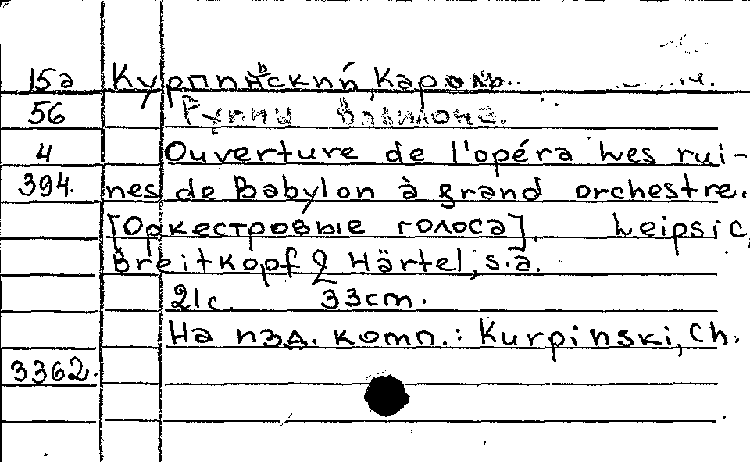 15а Курпинский, Кароль.
56 Руины Вавилона.
4 Ouverture de l'opéra Les rui-
394. nes de Babylon à grand orchestre.
[Оркестровые голоса]. Leipsic,
Breitkopf & Härtel, s.a.
21 c. 33 cm.
На изд. комп.: Kurpinski, Ch.
3362.